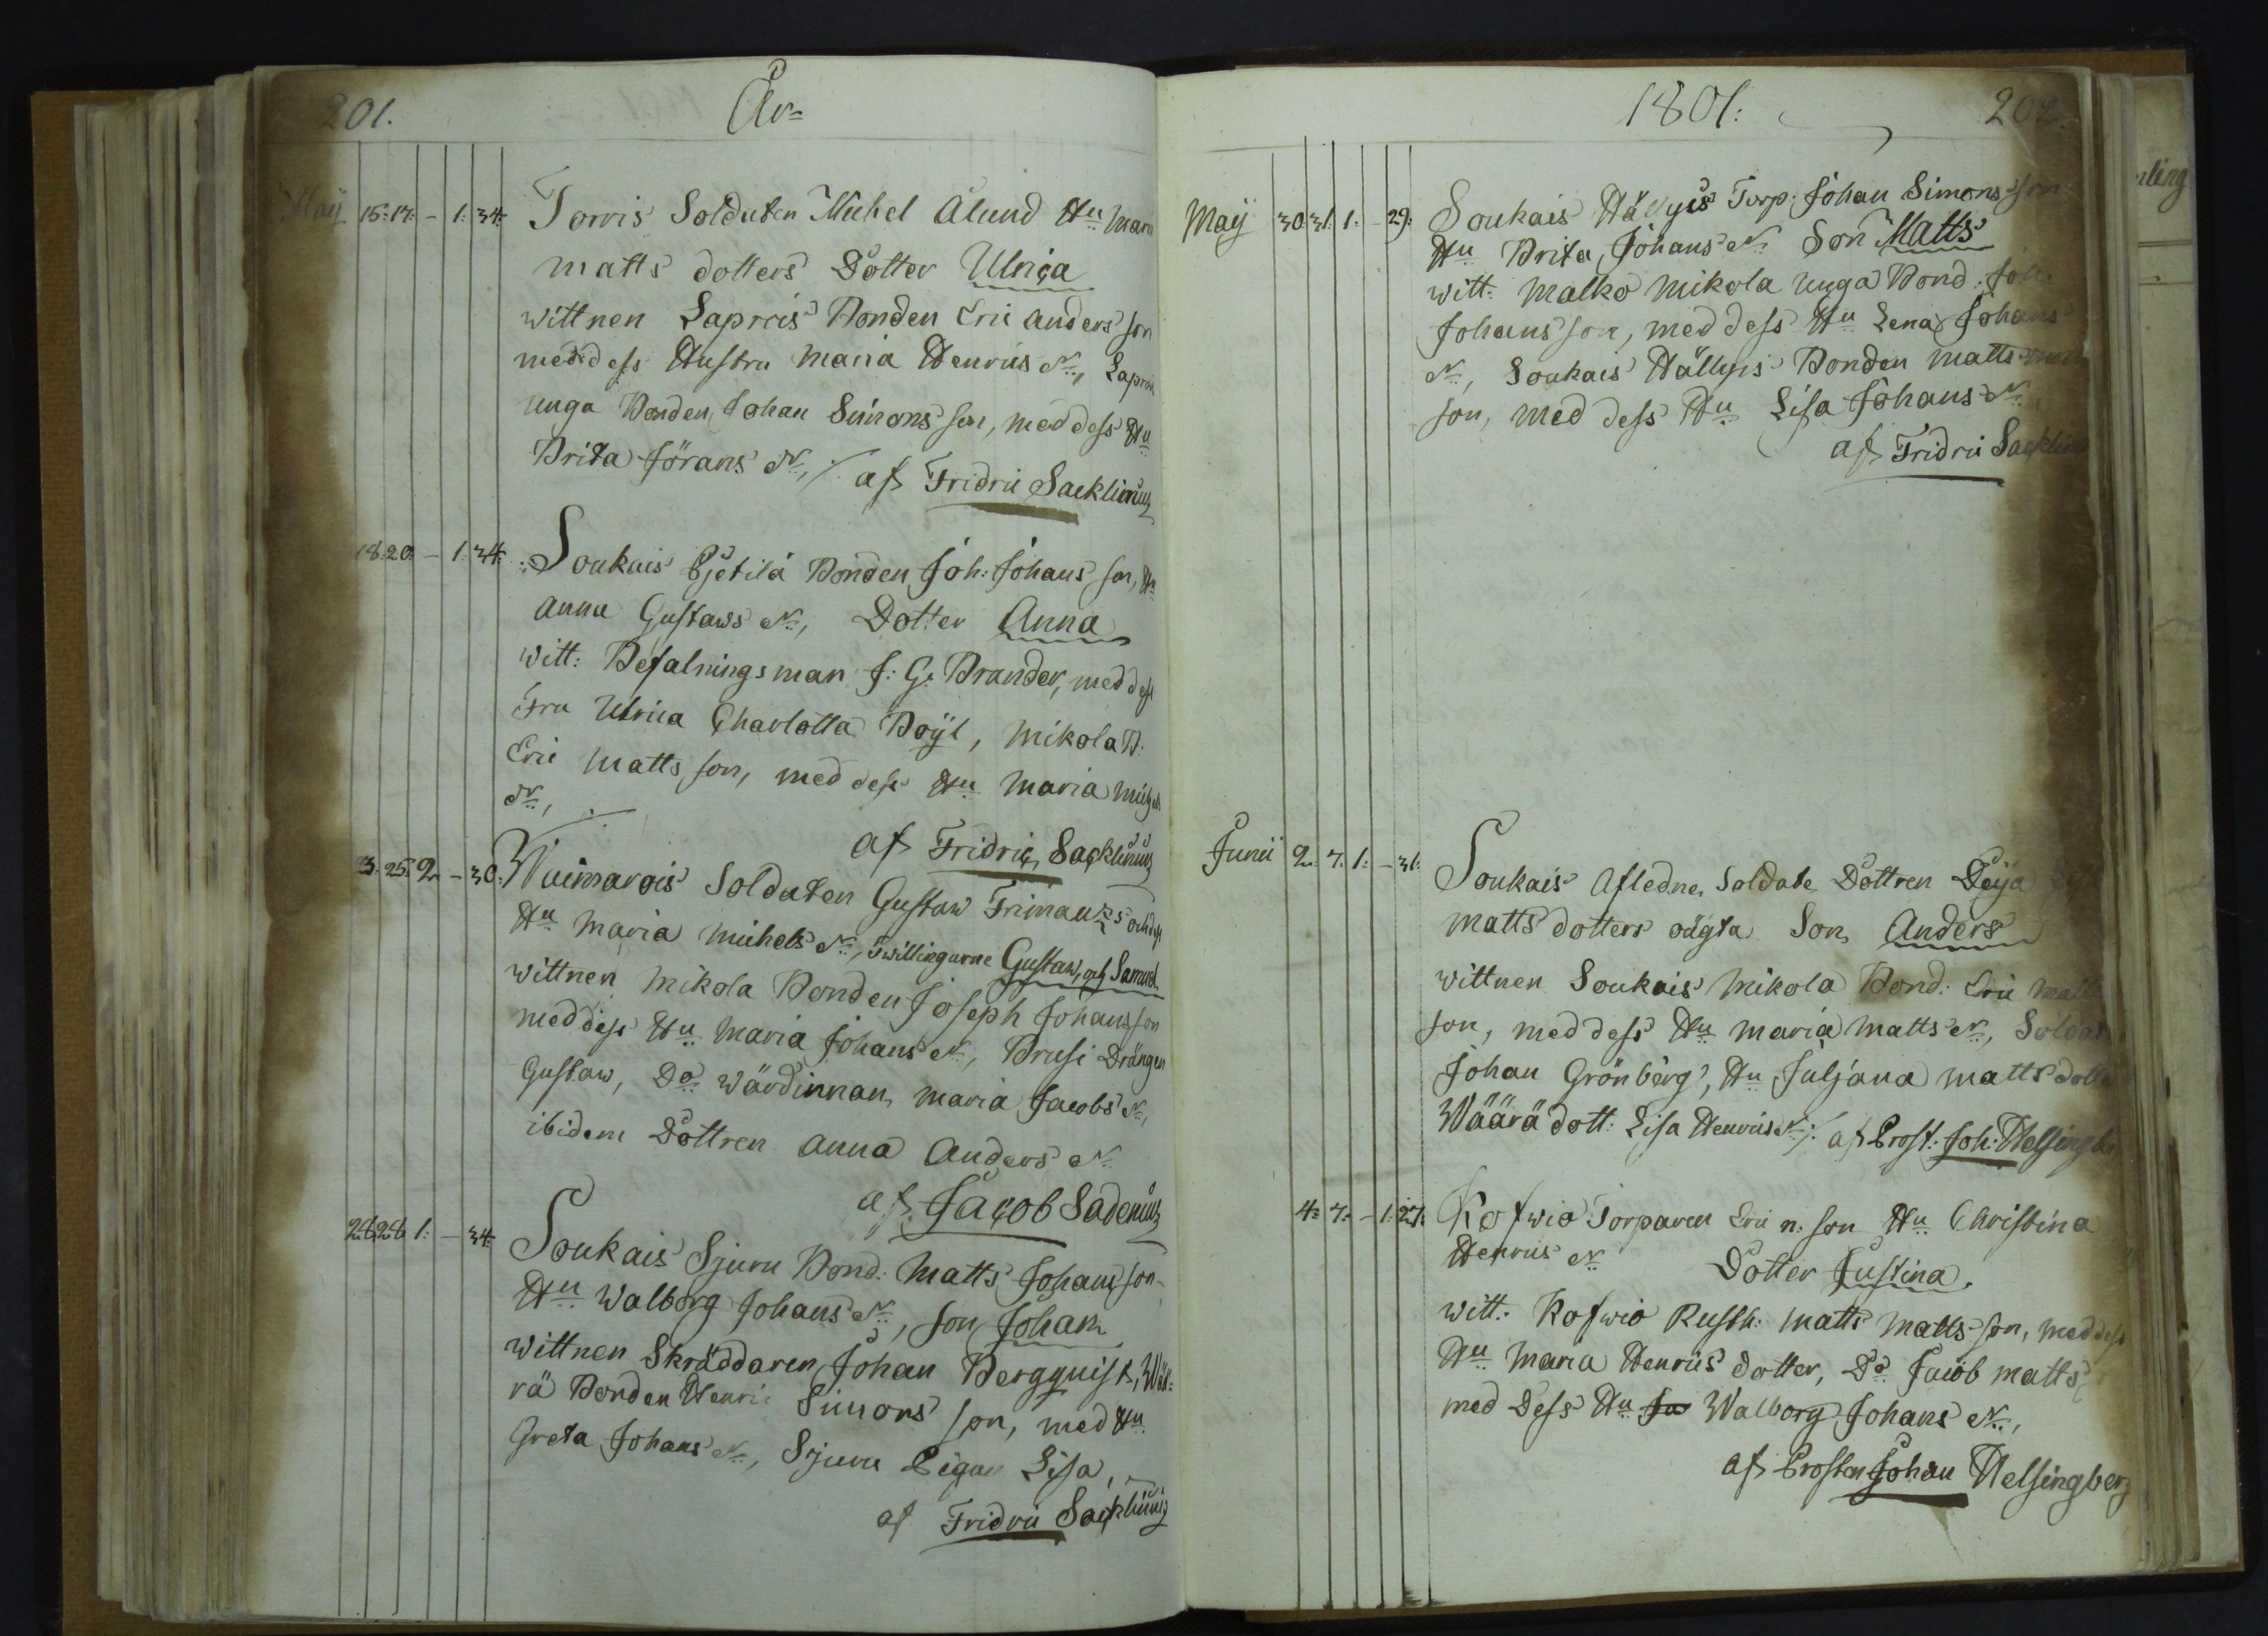 201.
År=
May 15. 17. - 1. 34. Torvis Soldaten Michel Ålund Hu Mari
matts dotters Dotter Ulrica
wittnen Laprois Bonden Eric anders son
med dess Hustru maria Henrics Nr, Laprois
unga Bonden Johan Simons son, med dess Hu
Brita Jörans Nr, af Fridric Sacklinius
18. 20. - 1. 34. Soukais Pjetilä Bonden Joh: Johans son, Hu
anna Gustaws Nr, Dotter Anna
witt: Befalningsman J: G: Brander, med dess
Fru Ulrica Charlotta Boÿl, Mikola B:
Eric Matts son, med dess Hu Maria Michels
Nr,
af Fridric Sacklinius
23. 25. 2 - 30. Wuimarois Soldaten Gustaw Frimans och dess
Hu Maria Michels Nr, Twillingarne Gustaw, och Samuel
wittnen Mikola Bonden Joseph Johansson
med dess Hu Maria Johans Nr, Prusi Drängen
Gustaw, Do Wärdinnan, Maria Jacobs Nr,
ibidem Dottren Anna Anders Nr
af Jacob Sadenius
28. 28. 1. - 34. Soukais Sjuru Bond: Matts Johans son
Hu Walborg Johans Nr, son Johan
wittnen Skräddaren Johan Bergquist, Wää=
rä Bonden Henric Simons son, med Hu
Greta Johans Nr, Sjuru Pigan Lisa,
af Fridric Sacklinius
1801:
202.
May 30. 31. 1. - 29. Soukais Hällyis Torp: Johan Simons son
Hu Brita Johans Nr Son Matts
witt: Malko Mikola unga Bond: Joh:
Johans son, med dess Hu Lena Johans
Nr, Soukais Hällyis Bonden matts
son, med dess Hu Lisa Johans Nr,
af Fridric Sacklinius
Junii 2. 7. 1. - 31. Soukais Afledne Soldate Dottren
matts dotters oägta Son, Anders
wittnen Soukais Mikola Bond: Eric Matts
son, med dess Hu Maria Matts Nr, Soldat
Johan Grönberg, Hu Juljana matts dotter
Wäärä dott: Lisa Henrics Nr /: af Prost: Joh: Helsingber
4. 7. - 1. 27. Kofwio Torparen Eric n. son Hu Christina
Henrics Nr Dotter Justina.
witt: Kofwio Rusth: Matts Matts son, med dess
Hu Maria Henrics dotter, Do Jacob matts
med Dess Hu Walborg Johans Nr,
af Prosten Johan Helsingberg